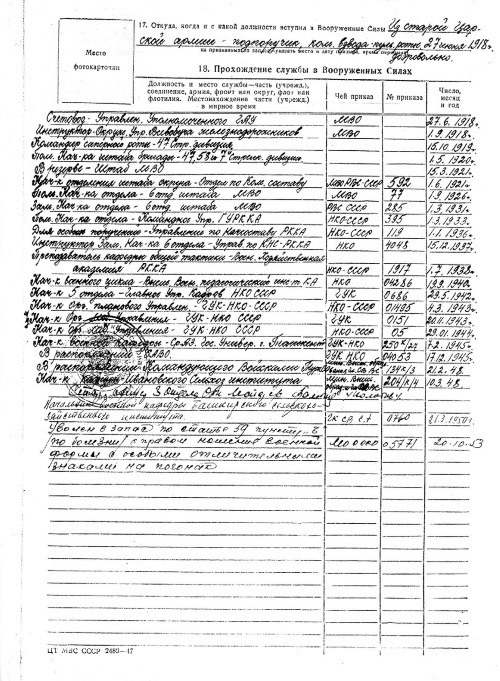 17. Откуда, когда и с какой должности вступил в Вооруженные Силы Из старой Цар-
ской армии - подпоручик, ком. взвода пулем. роты. 27 июня 1918 г.
добровольно.
Место
фотокарточки
18. Прохождение службы в Вооруженных Силах
Должность и место службы—часть (учрежд.), соединение, армия, фронт или округ, флот или флотилия. Местонахождение части (учрежд.) в мирное время | Чей приказ | № приказа | Число, месяц и год
Счетовод - Управлен. Уполномоченного ГАУ МВО 27.6.1918г.
Инструктор - Окруж. Упр. Всевобуча железнодорожников МВО 1.9.1918г.
Командир саперной роты - 47 Стр. дивизия 15.10.1919г.
Пом. Нач-ка штаба бригады - 47, 58 и 7 Стрелк. дивизии 1.5.1920г.
В резерве - Штаб МВО 15.3.1921г.
Нач-к отделения штаба округа - Отдел по Ком. составу СССР 592 1.6.1921г.
Пом. Нач-ка отдела - 6 отд. штаба МВО МВО 77 1.3.1926г.
Зам. Нач-ка отдела - 6 отд. штаба МВО РВС СССР 285 1.3.1931г.
Пом. Нач-ка отдела - Командное Упр. ГУРККА НКО-СССР 395 1.3.1935г.
Для особых поручений - Управление по Начсоставу РККА НКО-СССР 119 1.1.1936г.
Инструктор Зам. Нач-ка 6 отдела - Управ. по КНС-РККА НКО 4048 15.12.1937г.
Преподаватель кафедры общей тактики Воен. Хозяйственная
академия РККА НКО-СССР 1917 1.7.1938г.
Нач-к военного цикла - Высш. Воен. педагогический ин-т КА НКО 04286 1940г.
Нач-к 5 отдела - Главное Упр. Кадров НКО СССР ГУК 0686 29.5.1942г.
Нач-к Орг. планового Управлен. - ГУК-НКО-СССР НКО-СССР 01495 4.3.1943г.
Нач-к Орг. Управления - ГУК-НКО СССР ГУК 0151 1943г.
Нач-к Орг. Управления - ГУК-НКО СССР НКО-СССР 05 1944г.
Нач-к Военной Кафедры - Ср. Аз. Гос. Универ. г. Ташкент ГУК-НКО 7.2.1945г.
В распоряжении ГУК НКО 04053 17.12.1945г.
В распоряжении Командующего Войсками 134 21.2.48.
Нач-к Кафедры Ивановского Сельхоз института 204 10.3.48.
Начальник военной кафедры Башкирского сельско-
хозяйственного института. 0760 21.3.1950г.
Уволен в запас по статье 59 пункт
(по болезни) с правом ношения военной
формы с особыми отличительными
знаками на погонах 05771 20.10.53
ЦТ МВС СССР 2480—47